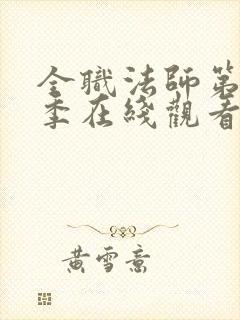 全職法師第
季在綫觀看
黃雪意